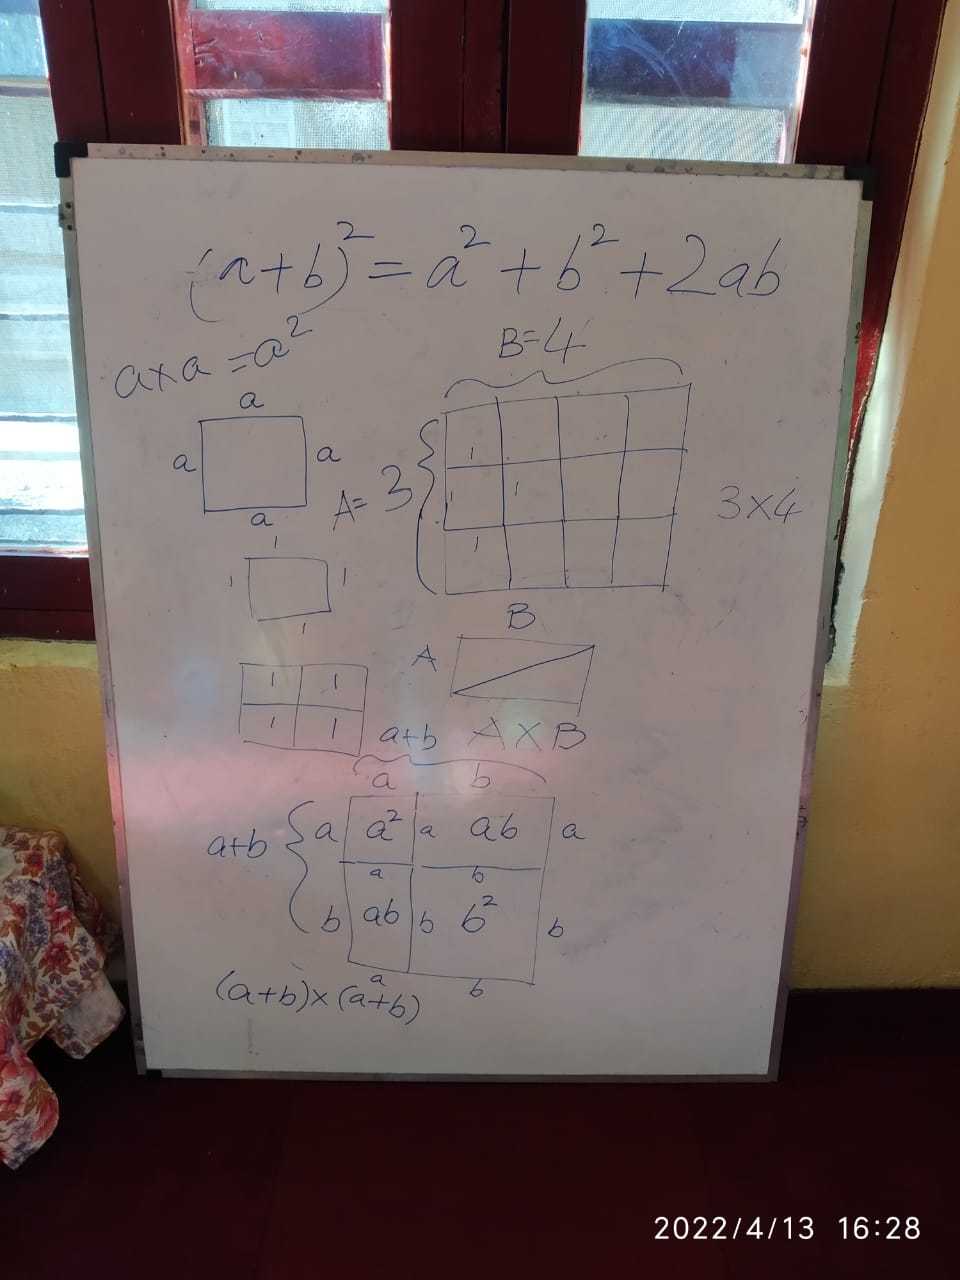 (a+b)² = a² + b² + 2ab
a×a = a²
B=4
a
a
a
a
A= 3
1
1
1
1
3×4
1
1
1
1
B
A
1 1
1 1
A×B
a+b
a b
a+b
a a² a ab a
a b
b ab b b² b
a b
(a+b)×(a+b)
2022/4/13 16:28